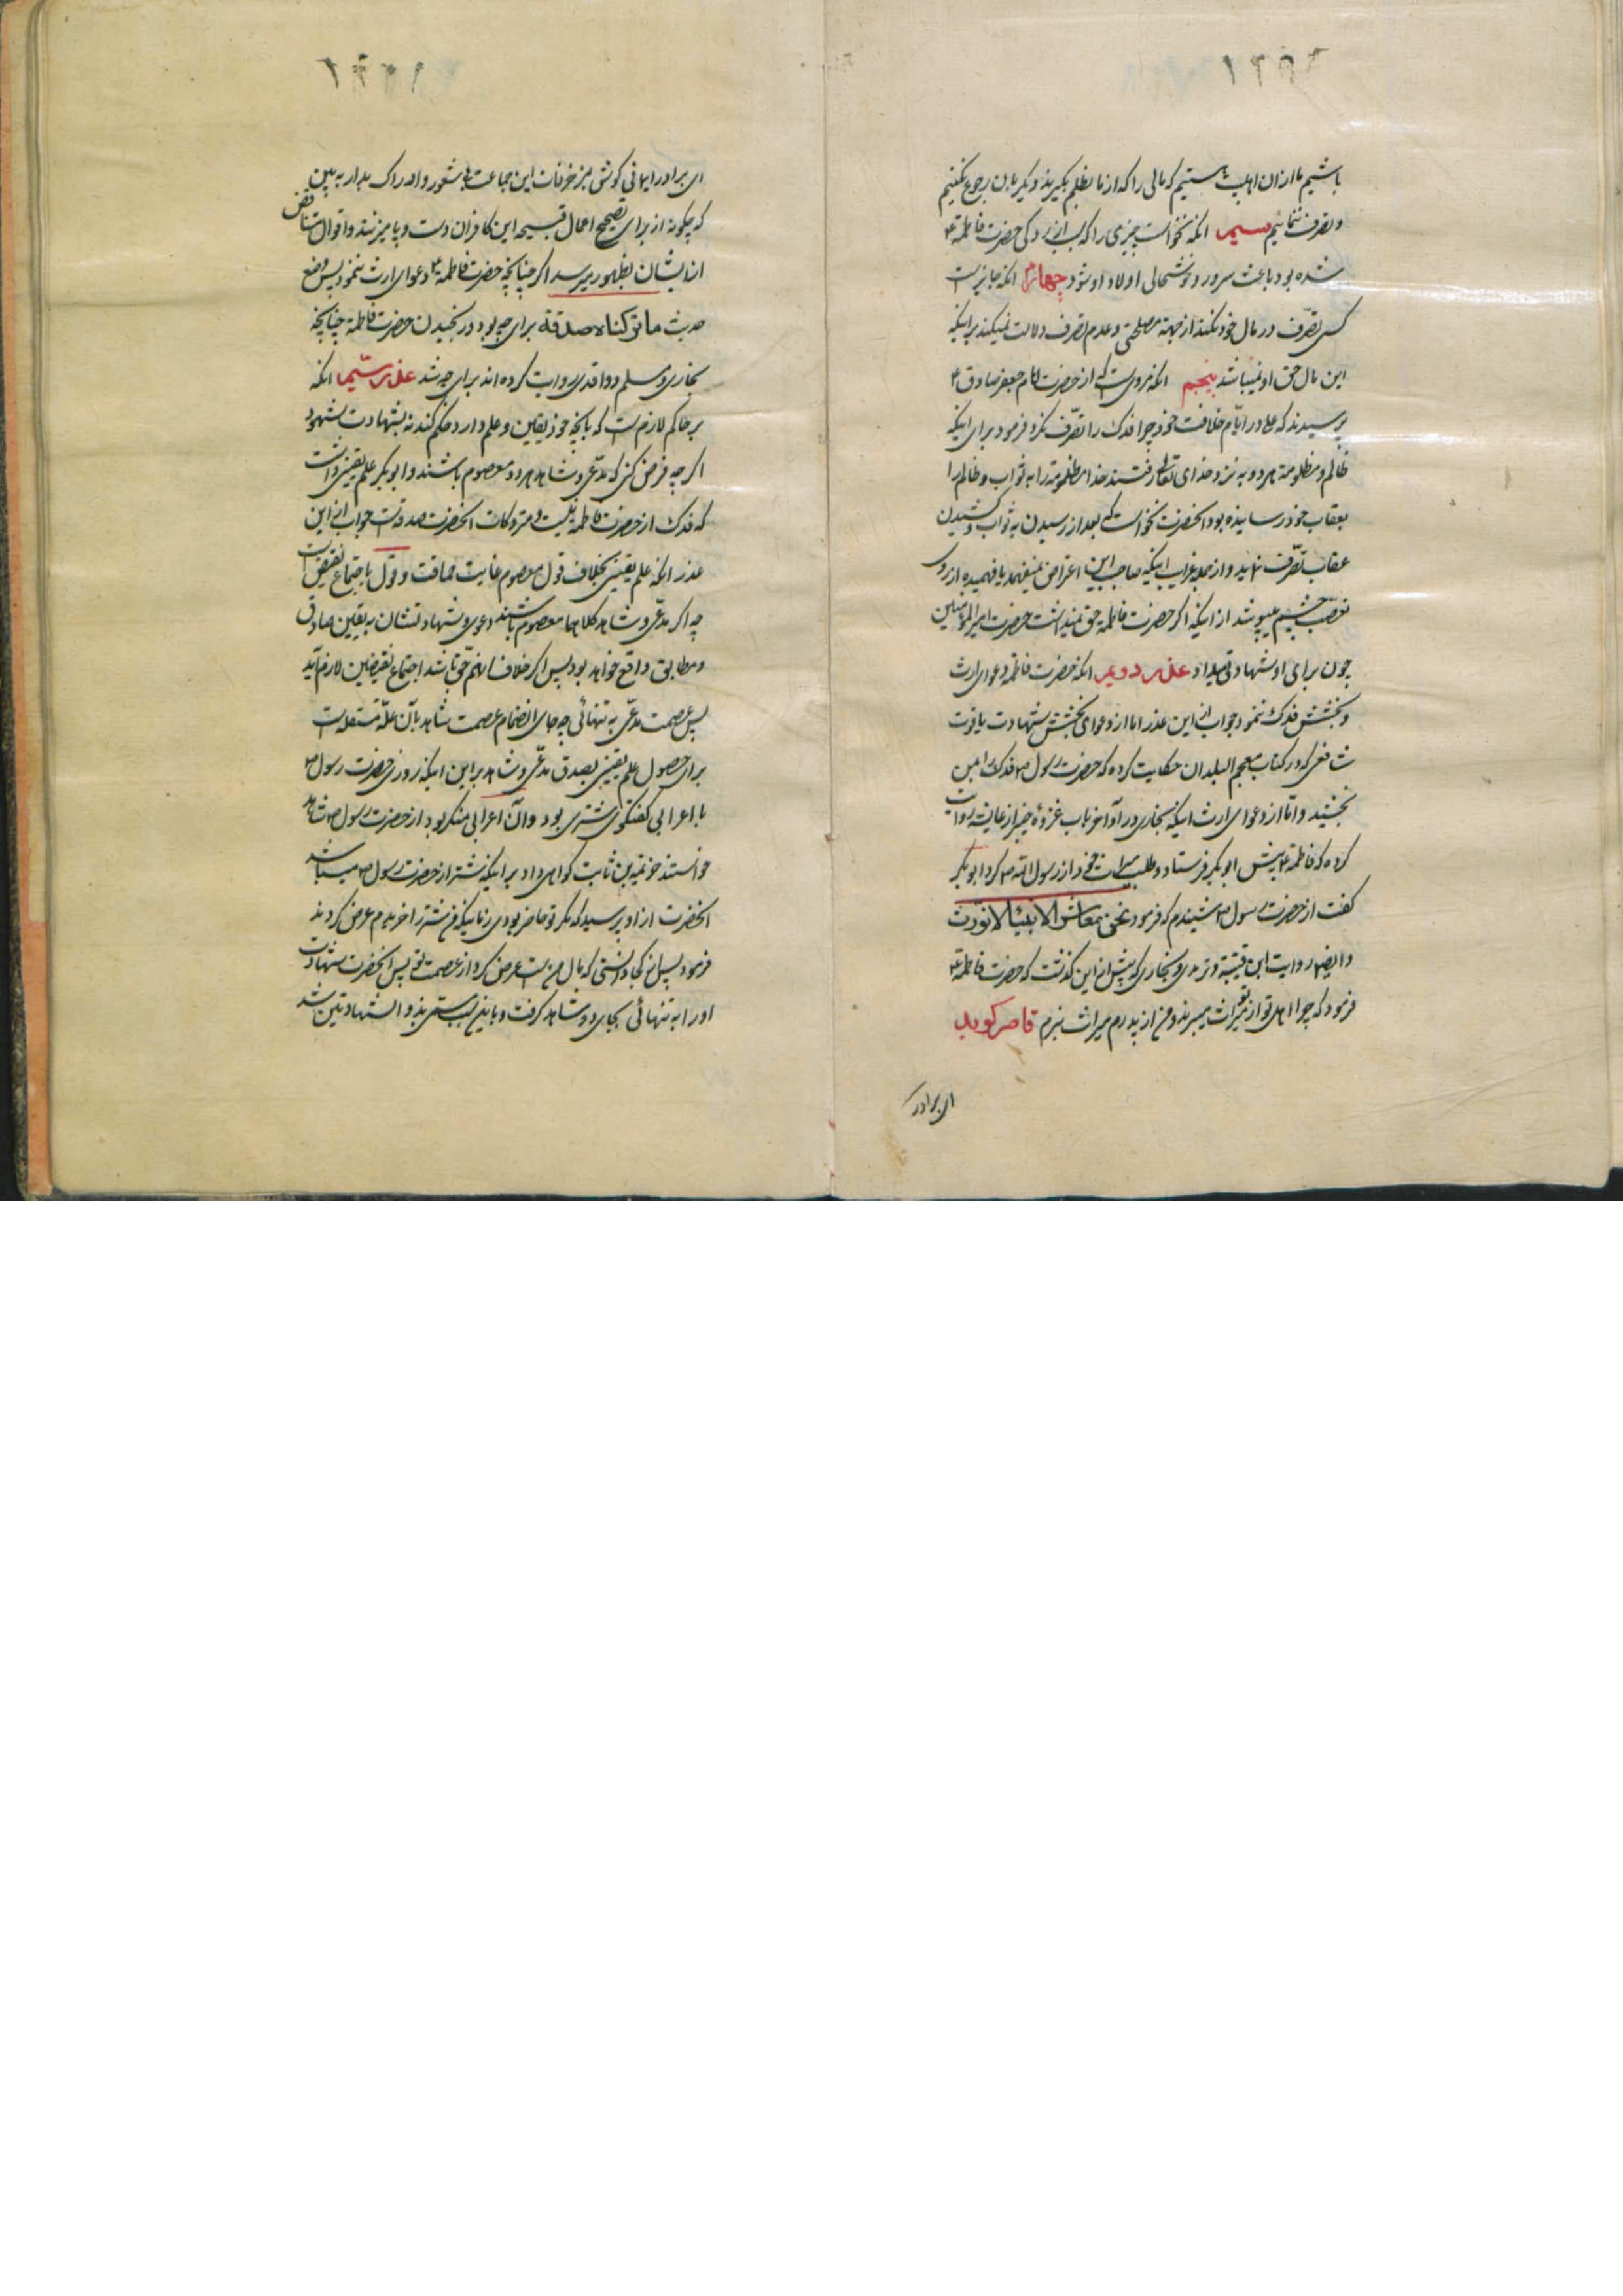 باشیم ما از ان اهلبیت هستیم که مالی را که از ما بظلم بگیرند دیگر بان رجوع نکنیم
و تصرف ننمائیم سیم انکه نخواست چیزی را که سبب ازردگی حضرت فاطمه ع
شده بود باعث سرور و خوشحالی اولاد او شود چهارم انکه جایز است
کسی تصرّف در مال خود نکند از جهة مصلحتی و عدم تصرف دلالت نمیکند بر اینکه
این مال حق او نمیباشد پنجم انکه مرویست که از حضرت امام جعفر صادق ع
پرسیدند که علی در ایّام خلافت خود چرا فدک را تصرّف نکرد فرمود برای اینکه
ظالم و مظلومه هر دو به نزد خدای تعالی رفتند خدا مظلومه را به ثواب و ظالم را
بعقاب خود رسانیده بود انحضرت نخواست که بعد از رسیدن به ثواب و کشیدن
عقاب تصرّف نماید و از جمله غرایب اینکه صاحب این اعتراض نمیفهمد یا فهمیده از روی
تعصّب چشم میپوشد از اینکه اگر حضرت فاطمه حق نمیداشت حضرت امیرالمؤمنین
چون برای او شهادت میداد عذر دویم انکه حضرت فاطمه دعوای ارث
و بخشش فدک ننمود جواب از این عذر اما از دعوای بخشش شهادت یاقوت
شافعی که در کتاب معجم البلدان حکایت کرده که حضرت رسول ص فدک را بمن
بخشید و امّا از دعوای ارث اینکه بخاری در اواخر باب غزوهٔ خیبر از عایشه روایت
کرده که فاطمه ع پیش ابو بکر فرستاد و طلب میراث خود از رسول الله ص کرد ابو بکر
گفت از حضرت رسول ص شنیدم که فرمود نحن معاشر الانبیآء لا نورث
و ایضا روایت ابن قتیبة و ترمدی و بخاری که پیش از این گذشت که حضرت فاطمه ع
فرمود که چرا اهل تو از تو میراث میبرند و من از پدرم میراث نبرم قاصر کوید
ای برادر
ای برادر ایمانی گوش بمزخرفات این جماعت با شعور و ادراک بدار به بین
که چگونه از برای تصحیح اعمال قبیحه این کافران دست و پا میزنند و اقوال متناقض
از ایشان بظهور میرسد اگر چنانچه حضرت فاطمه ع دعوای ارث ننمود پس وضع
حدیث ما ترکناه صدقة برای چه بود و رنجیدن حضرت فاطمه چنانچه
بخاری و مسلم و واقدی روایت کرده اند برای چه شد عذر سیّم انکه
بر حاکم لازم است که بانچه خود یقین و علم دارد حکم کند نه بشهادت شهود
اگر چه فرض کنی که مدّعی و شاهد هر دو معصوم باشند و ابو بکر علم یقینی داشت
که فدک از حضرت فاطمه نیست و متروکات انحضرت صدقه است جواب از این
عذر انکه علم یقینی بخلاف قول معصوم غایت حماقت و قول باجتماع نقیضین است
چه اگر مدّعی و شاهد کلاهما معصوم باشند دعوی و شهادتشان به یقین صادق
و مطابق واقع خواهد بود پس اگر خلاف انهم حق باشد اجتماع نقیضین لازم اید
پس عصمت مدّعی به تنهائی چه جای انضمام عصمت شاهد بآن علّة مستقله است
برای حصول علم یقینی بصدق مدّعی و شاهد بر این اینکه روزی حضرت رسول ص
با اعرابی گفتگوی شتری بود و آن اعرابی منکر بود از حضرت رسول ص شاهد
خواستند خزیمة بن ثابت گواهی داد بر اینکه شتر از حضرت رسول ص میباشد
انحضرت از او پرسید که مگر تو حاضر بودی زمانیکه من شتر را خریدم عرض کرد نه
فرمود پس از کجا دانستی که مال من است عرض کرد از عصمت تو پس انحضرت شهادت
او را به تنهائی بجای دو شاهد گرفت و باین سبب مسمّی بذو الشهادتین شد